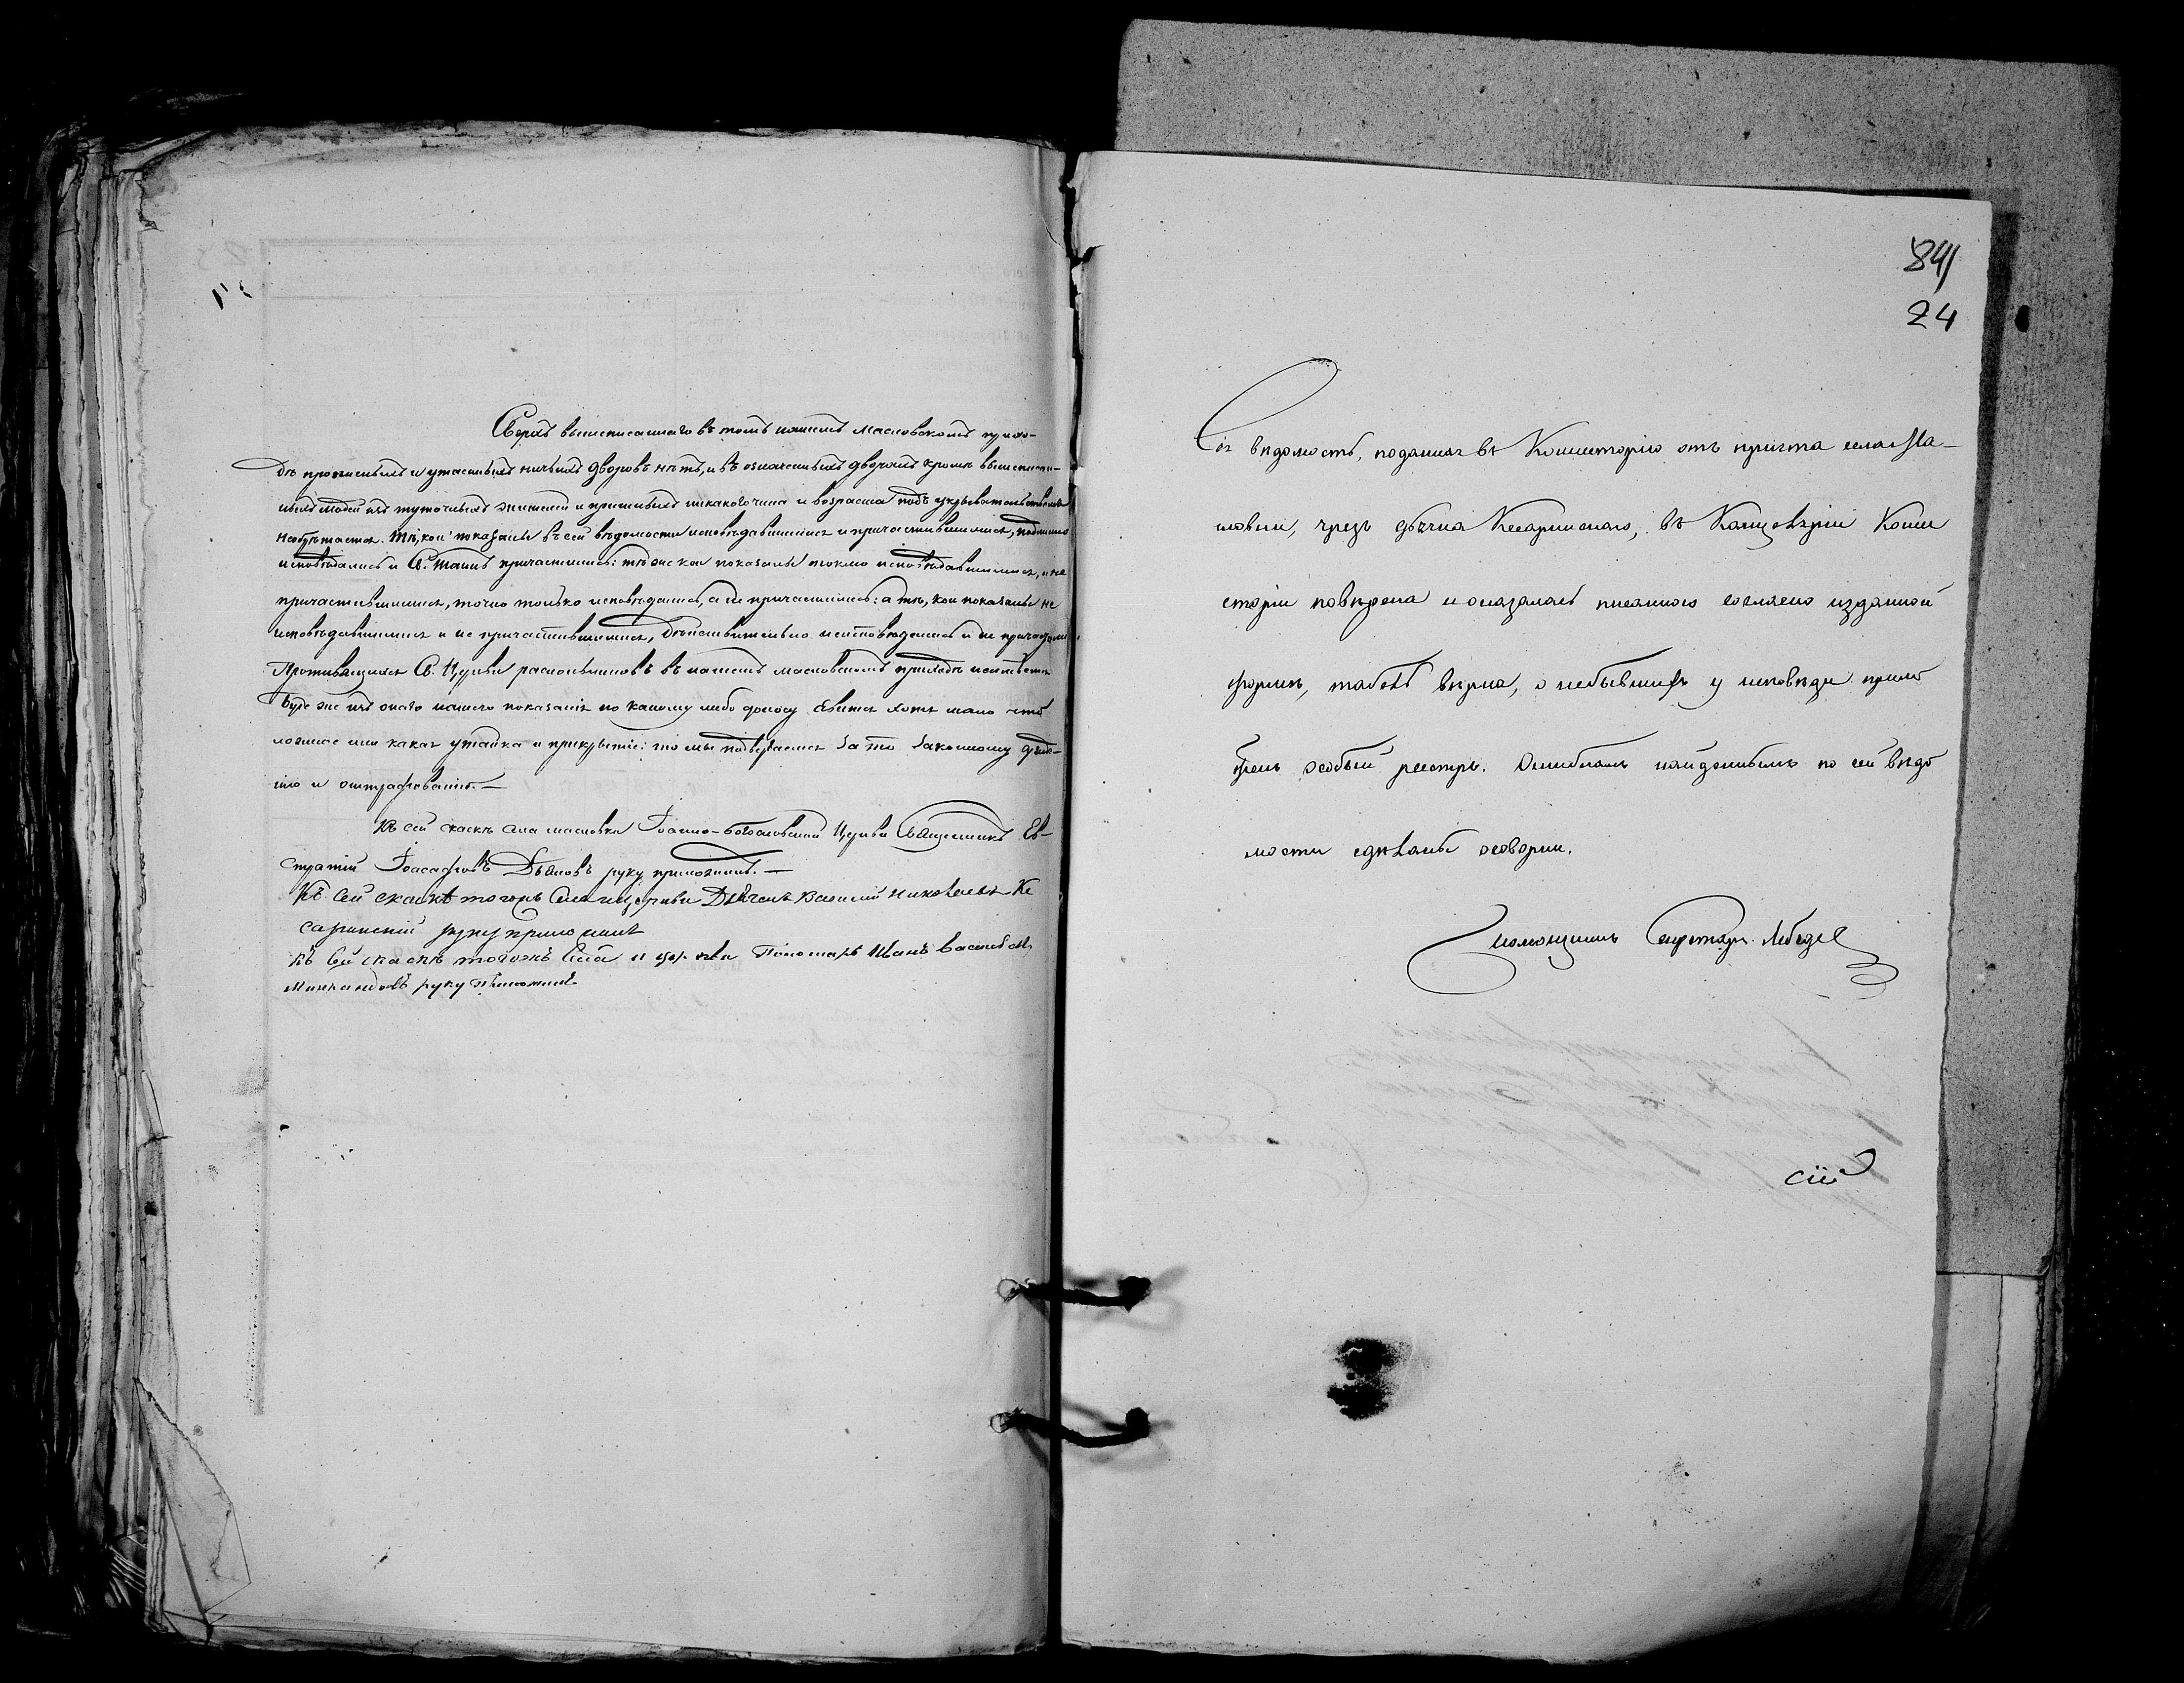 Сверхъ вышеписаннаго въ томъ нашемъ масловскомъ прихо-
дѣ прописныхъ и утаенныхъ ничьихъ дворовъ нѣтъ, и въ означенныхъ дворахъ кромѣ вышеписан-
ныхъ людей изъ туточныхъ жителей и пришлыхъ никакого чина и возраста подъ укрывательствомъ
необрѣтается. Тѣ, кои показаны въ сей вѣдомости исповѣдавшимися и причастившимися, подлинно
исповѣдались и Св. Таинъ причастились: тѣ же кои показаны токмо исповѣдавшимися, и не
причастившимися, точно только исповѣдались, а не причастились: а тѣ, кои показаны не
исповѣдавшимися и не причастившимися, дѣйствительно неисповѣдались и не причастились
Противящихся Св. Церкви раскольниковъ въ нашемъ масловскомъ приходѣ
Буде же изъ онаго нашего показанія по какому либо доносу явится хотя мало что
ложное или какая утайка и прикрытіе: то мы подвергаемся за то законному сужде-
нію и оштрафованію. —
Къ сей сказкѣ села масловки Іоанно-богословской Церкви Священникъ Ев-
стратій Іоасафовъ руку приложилъ. —
Къ сей сказкѣ тогожъ Села и церкви Дьячекъ Василий Николаевъ Ке
саринскій руку приложилъ
къ сей сказкѣ тогожъ Села и церкви Пономарь Иванъ васильевъ
руку приложилъ
84
24
Сія вѣдомость, поданная въ Консисторію отъ причта села Ма-
словки, чрезъ дьячка Кесаринскаго, въ Канцеляріи Конси
сторіи повѣрена и оказалась писанною согласно изданной
формѣ, табель вѣрна, о небывшихъ у исповѣди прило
женъ особый реестръ. Ошибкамъ найденнымъ по сей вѣдо
мости сдѣланы оговорки.
Помощникъ Секретаря Лебеде